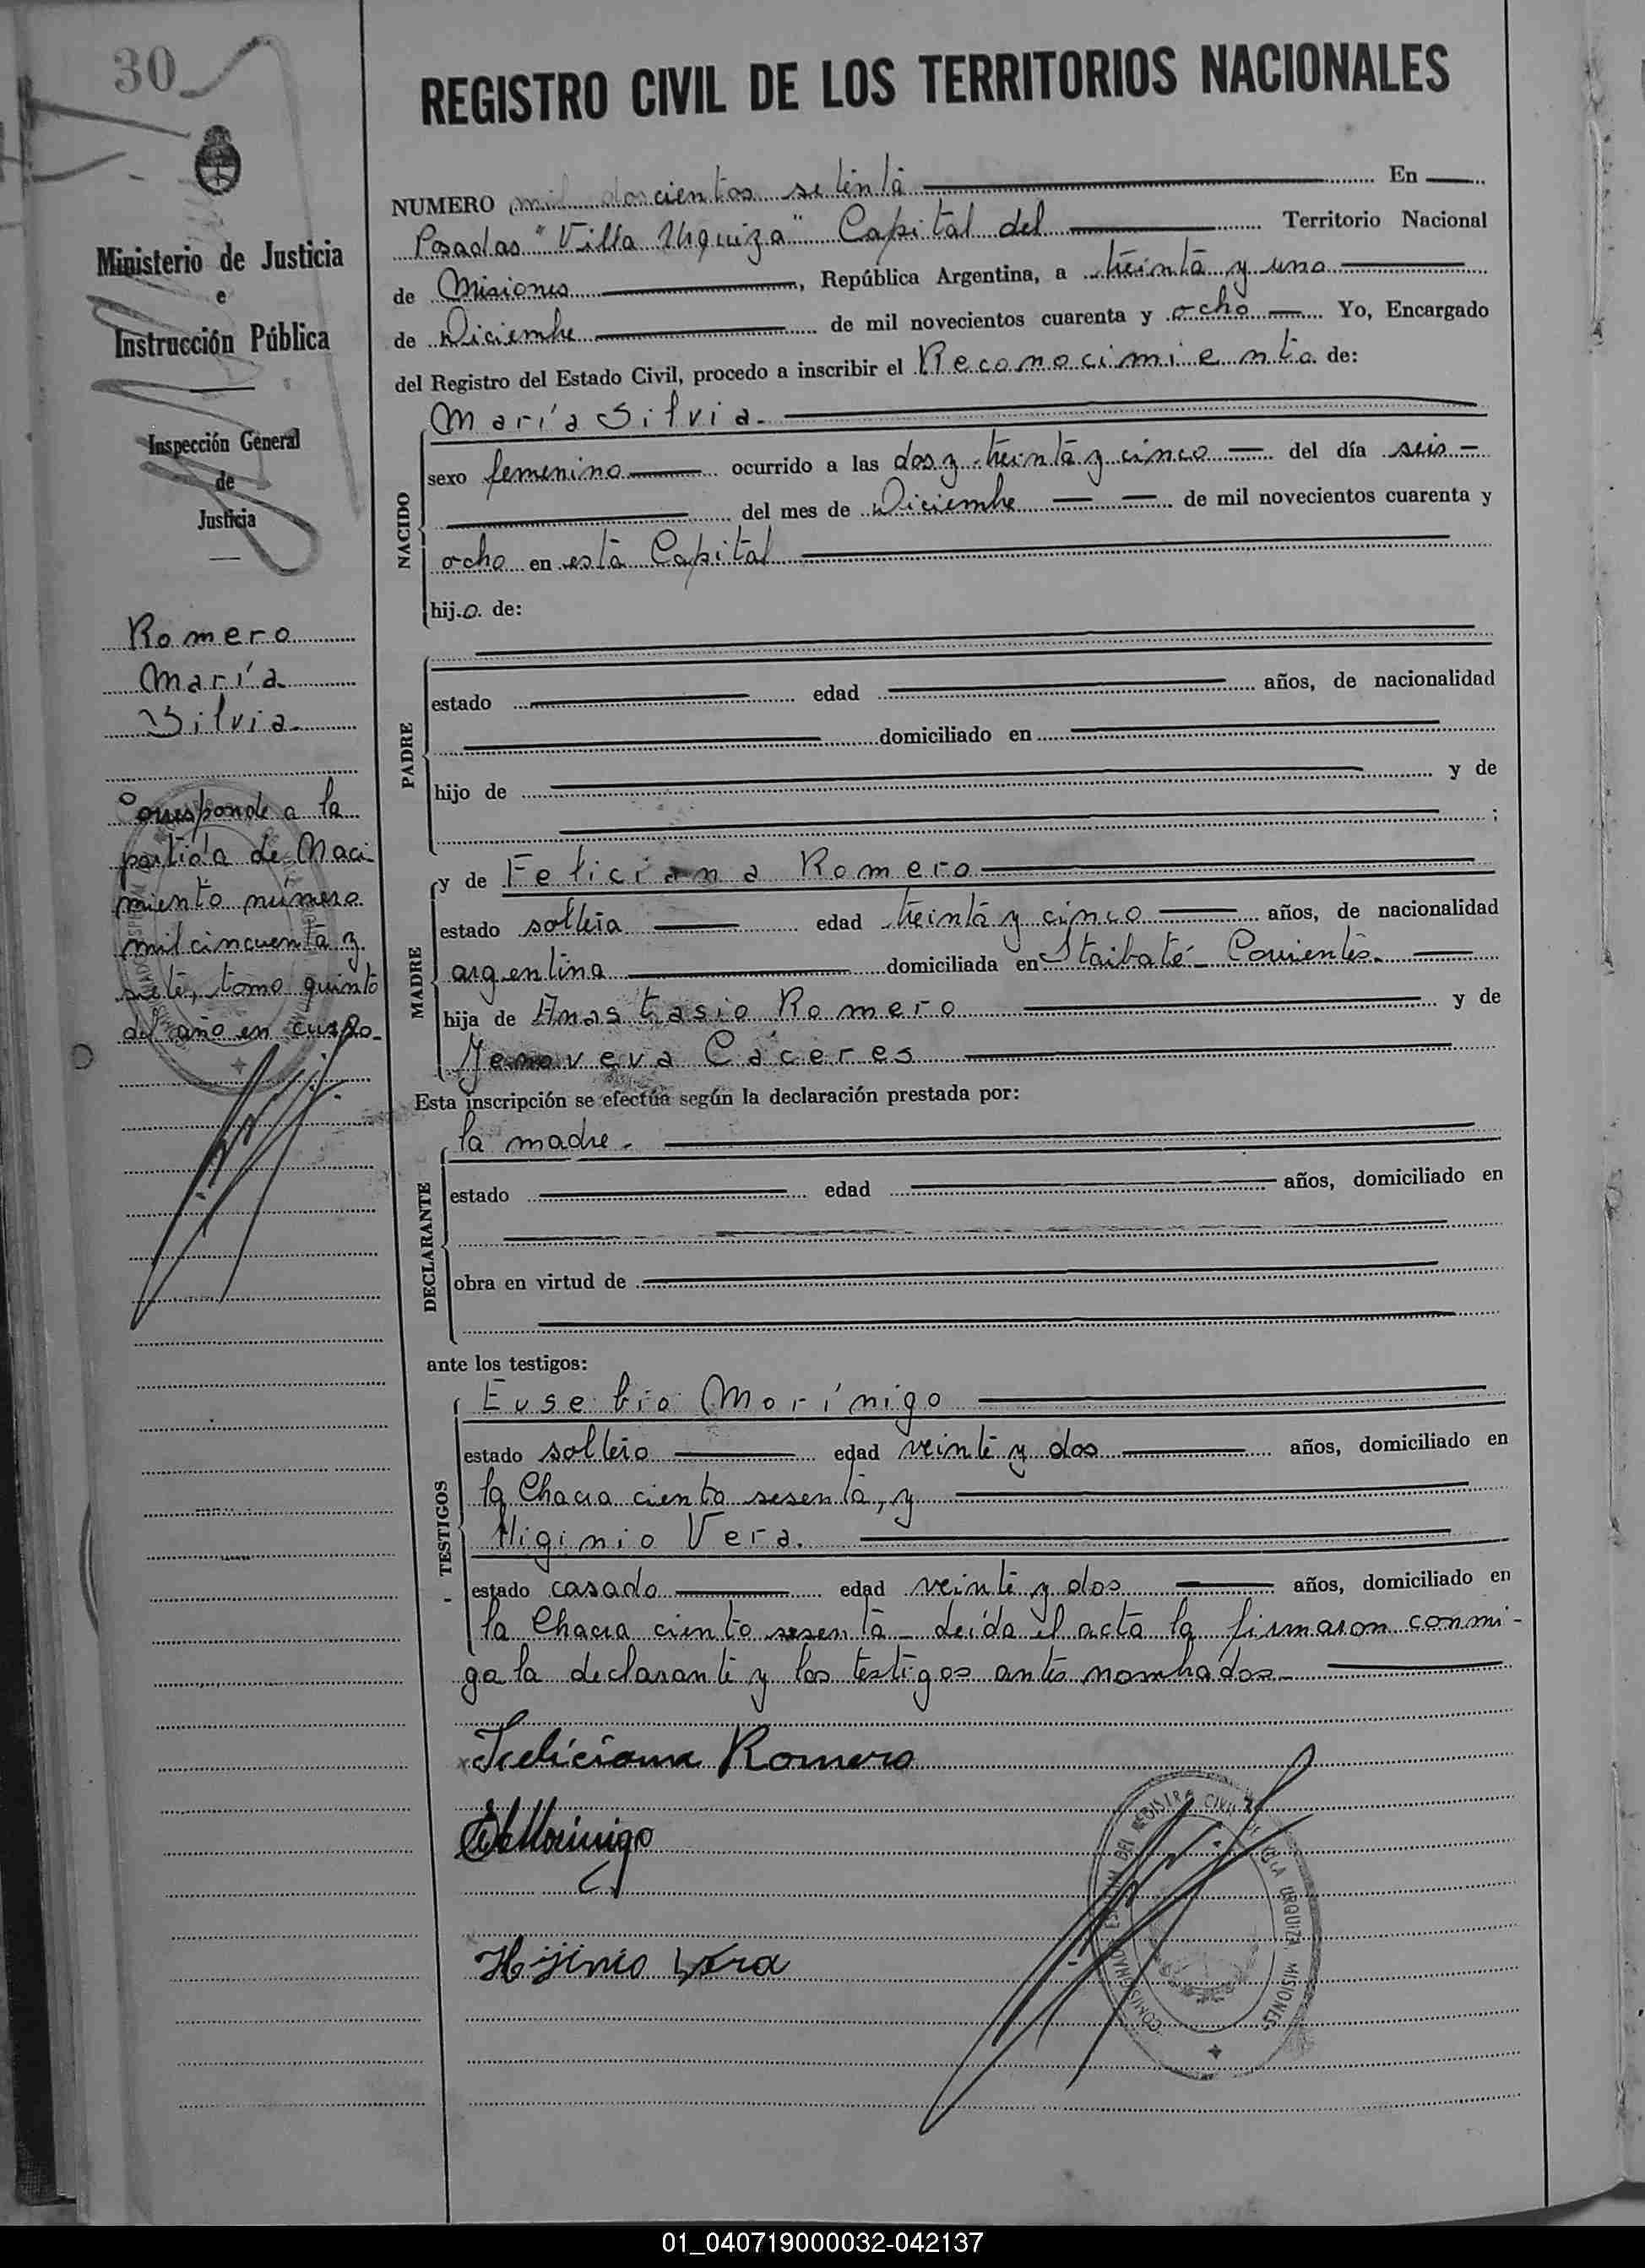 30
Ministerio de Justicia
e
Instrucción Pública
Inspección General
de
Justicia
Romero
María
Silvia
Corresponde a la
partida de Naci-
miento número
mil cincuenta y
siete, tomo quinto
del año en curso.
REGISTRO CIVIL DE LOS TERRITORIOS NACIONALES
NUMERO mil doscientos setenta En
Posadas "Villa Urquiza" Capital del Territorio Nacional
de Misiones, República Argentina, a treinta y uno
de Diciembre de mil novecientos cuarenta y ocho Yo, Encargado
del Registro del Estado Civil, procedo a inscribir el Reconocimiento de:
María Silvia.
NACIDO
sexo femenino ocurrido a las dos y treinta y cinco del día seis
del mes de Diciembre de mil novecientos cuarenta y
ocho en esta Capital
hij.o. de:
PADRE
estado edad años, de nacionalidad
domiciliado en
hijo de y de
;
MADRE
y de Feliciana Romero
estado soltera edad treinta y cinco años, de nacionalidad
argentina domiciliada en Itaibaté - Corrientes.
hija de Anastasio Romero y de
Jenoveva Cáceres
Esta inscripción se efectúa según la declaración prestada por:
la madre.
DECLARANTE
estado edad años, domiciliado en
obra en virtud de
ante los testigos:
TESTIGOS
Eusebio Morínigo
estado soltero edad veinte y dos años, domiciliado en
la Chacra ciento sesenta, y
Higinio Vera.
estado casado edad veinte y dos años, domiciliado en
la Chacra ciento sesenta - Leída el acta la firmaron conmi-
go la declarante y los testigos antes nombrados.
Feliciana Romero
E Morinigo
Hijinio Vera
REGISTRO CIVIL DE VILLA URQUIZA MISIONES
01_040719000032-042137